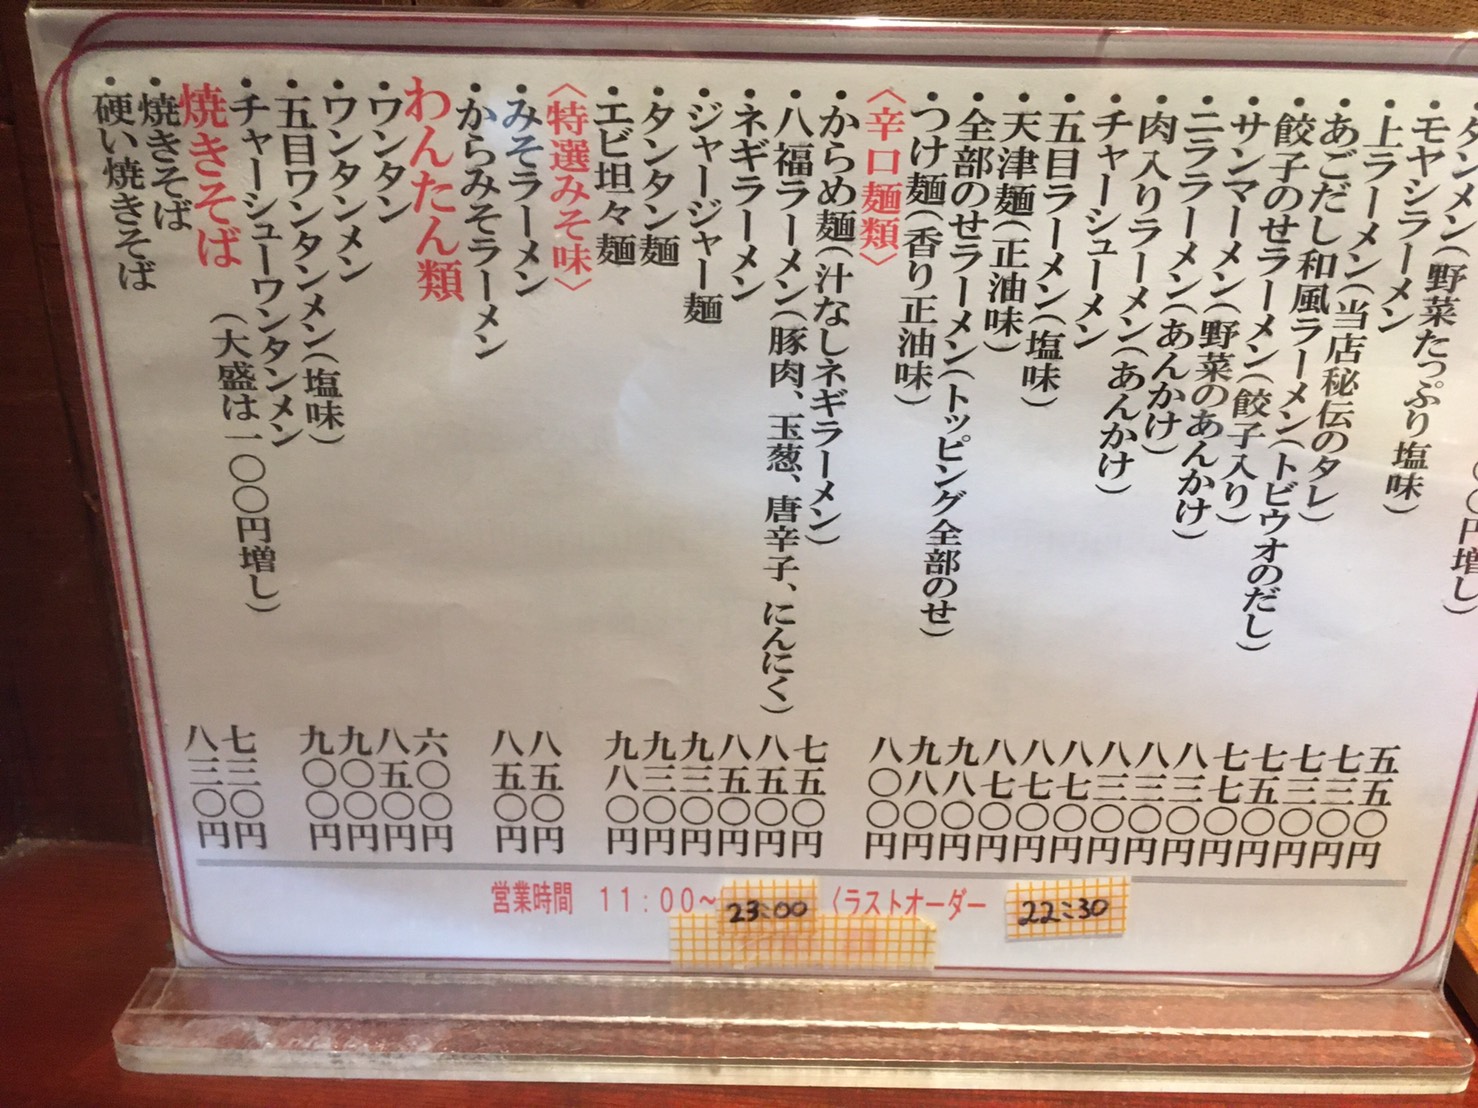 〇円増し）
五五〇円
タンメン（野菜たっぷり塩味） 七三〇円
・モヤシラーメン 七三〇円
・上ラーメン（当店秘伝のタレ） 七五〇円
・あごだし和風ラーメン（トビウオのだし） 七七〇円
・餃子のせラーメン（餃子入り） 八三〇円
・サンマーメン（野菜のあんかけ） 八三〇円
・ニララーメン（あんかけ） 八三〇円
・肉入りラーメン（あんかけ） 八七〇円
・チャーシューメン 八七〇円
・五目ラーメン（塩味） 八七〇円
・天津麺（正油味） 九八〇円
・全部のせラーメン（トッピング全部のせ） 九八〇円
・つけ麺（香り正油味） 八〇〇円
〈辛口麺類〉
・からめ麺（汁なしネギラーメン） 七五〇円
・八福ラーメン（豚肉、玉葱、唐辛子、にんにく） 八五〇円
・ネギラーメン 八五〇円
・ジャージャー麺 九三〇円
・タンタン麺 九三〇円
・エビ坦々麺 九八〇円
〈特選みそ味〉
・みそラーメン 八五〇円
・からみそラーメン 八五〇円
わんたん類
・ワンタン 六〇〇円
・ワンタンメン 八五〇円
・五目ワンタンメン（塩味） 九〇〇円
・チャーシューワンタンメン 九〇〇円
焼きそば（大盛は一〇〇円増し）
・焼きそば 七三〇円
・硬い焼きそば 八三〇円
営業時間 11:00〜23:00（ラストオーダー 22:30